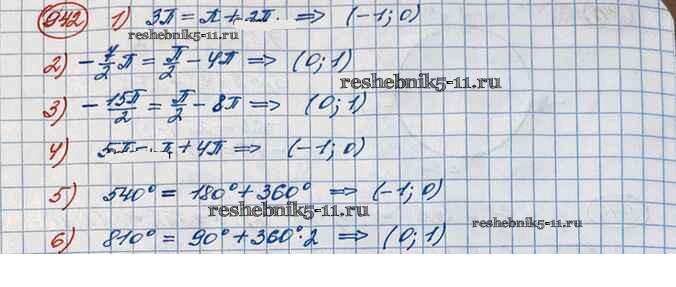 942 1) 3π = π + 2π. ⇒ (-1; 0)
reshebnik5-11.ru
2) -7/2 π = π/2 - 4π ⇒ (0; 1)
reshebnik5-11.ru
3) -15π/2 = π/2 - 8π ⇒ (0; 1)
4) 5π - π + 4π ⇒ (-1; 0)
5) 540° = 180° + 360° ⇒ (-1; 0)
reshebnik5-11.ru
reshebnik5-11.ru
6) 810° = 90° + 360°·2 ⇒ (0; 1)